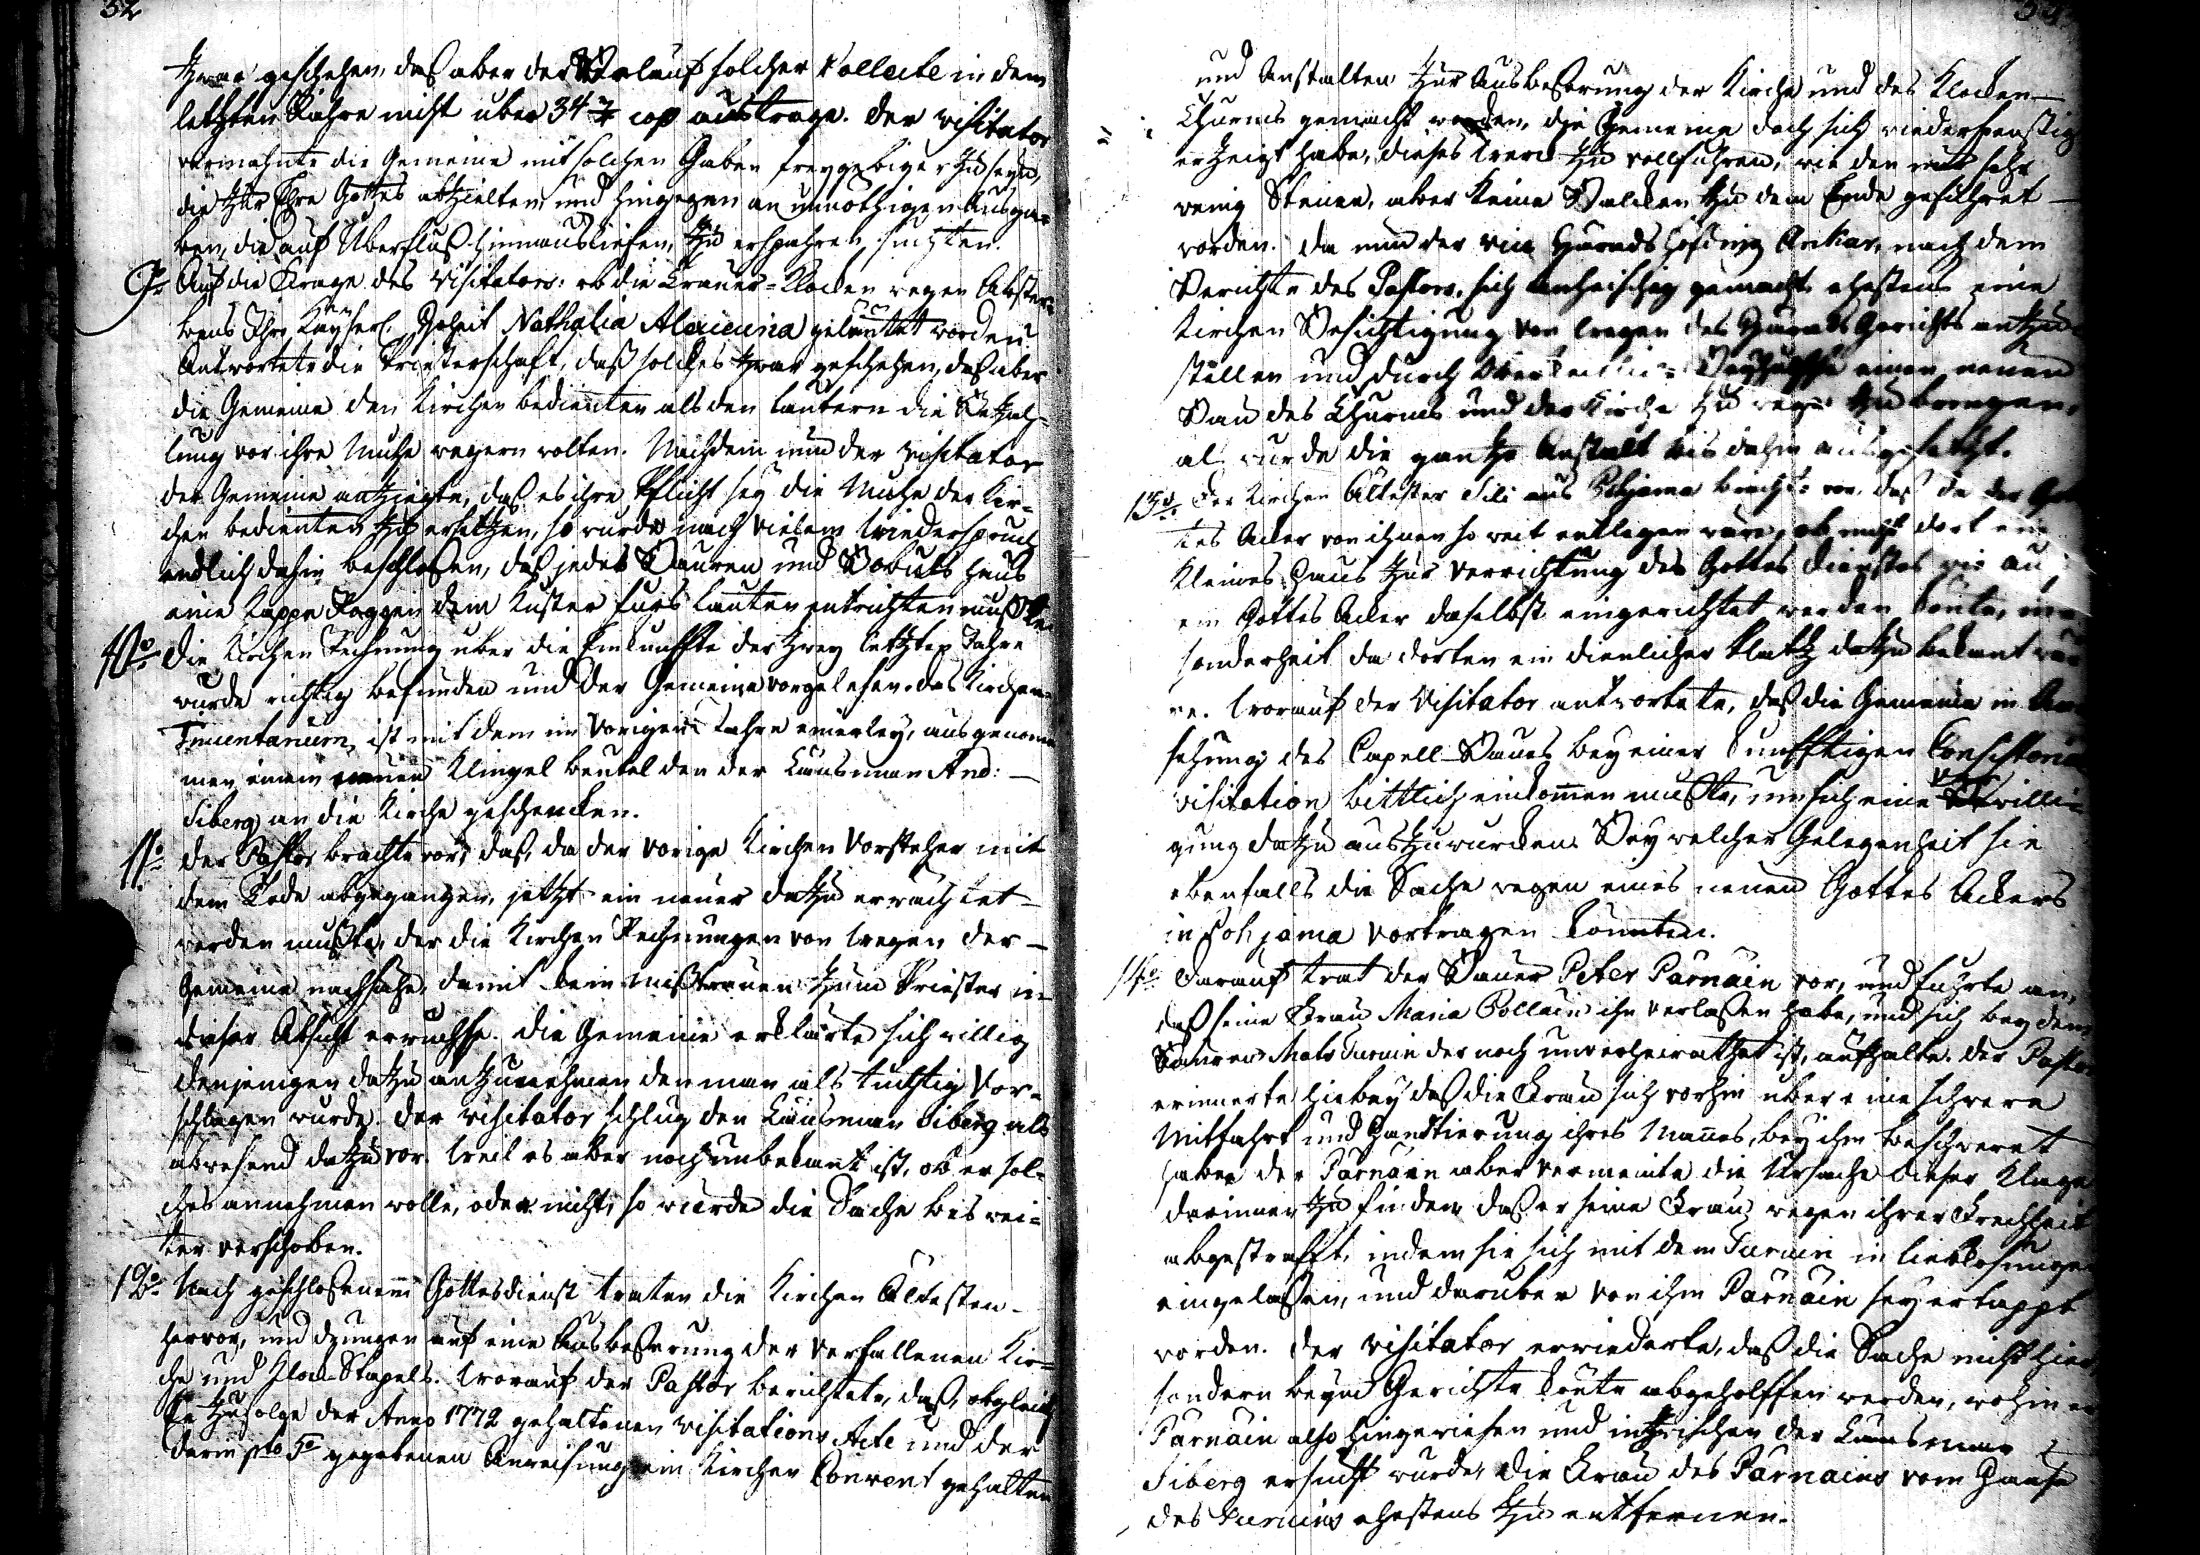 52
zwar geschehen, daß aber der Verlauf solcher Collecte in dem
letzten Jahre nicht über 34 cop austrage. der visitator
vermahnte die Gemeine mit solchen Gaben freygebiger zu seyn,
die zur Ehre Gottes abzielten und hingegen an unnöthigen Ausga=
ben, die auf Überfluß hinnausliefen, zu ersparen suchten.
9o Auf die Frage des Visitators: ob die Trauer=Klocken wegen Abster=
bens Ihro Kayserl. Hoheit Nathalia Alexieuna geläutet worden
Antwortete die Priesterschaft, daß solches zwar geschehen, daß aber
die Gemeine den Kirchen bedienten als den Läutern die Bezah=
lung vor ihre Mühe wegern wolten. Nachdem nun der visitator
der Gemeine anzeigte, daß es ihre Pflicht sey die Mühe der Kir=
chen bedienten zu ersetzen, so wurde nach vielem wiederspruch
endlich dahin beschloßen, daß jedes Bauren und Bobuls Haus
eine Kappe Roggen dem Küster fürs Läuten entrichten
10o Die Kirchen Rechnung über die Einkünffte der zwey letzten Jahre
wurde richtig befunden und der Gemeine vorgelesen. das Kirchen=
Inventarium, ist mit dem im Vorigen Jahre einerley, ausgenom=
men einem neuen Klingel beutel den der Länsman And:
Siberg an die Kirche geschencken.
11o Der Pastor brachte vor, daß, da der vorige Kirchen Vorsteher mit
dem Tode abgegangen, jetzt ein neuer dazu erwachtet
werden müßte, der die Kirchen Rechnungen von wegen der
Gemeine nachsähe, damit kein Mißtrauen zum Priester in
dieser Absicht erwachse. die Gemeine erklärte sich willig
denjenigen dazu anzunehmen den man als tüchtig Vor=
schlagen würde. der visitator schlug den Länsman Siberg als
abwesend dazu vor. weil es aber noch unbekant ist, ob er sol=
ches annehmen wolle, oder nicht, so wurde die Sache bis wei=
ter verschoben.
12o Nach geschloßenem Gottesdienst traten die Kirchen Ältesten
hervor, und drungen auf eine Ausbeßerung der verfallenen Kir=
che und Klock-Stapels. worauf der Pastor berichtete, daß, obgleich
zufolge der Anno 1772 gehaltenen visitations Acte und der
darin pto 5o gegebenen Anweisung ein Kirchen Convent gehalten
und Anstalten zur Ausbeßerung der Kirche und des Klocken
Thurms gemacht worden, die Gemeine doch sich wiederspenstig
erzeigt habe, dieses werck zu vollführen, wie den auch sehr
wenig Steine, aber keine Balcken zu dem Ende geführet
worden. Da nun der vice Härads Höfding Ankar, nach dem
Berichte des Pastors, sich anheischig gemacht ehestens eine
Kirchen Besichtigung von wegen des Härads Gerichts anzu=
stellen und durch Beyhülffe einen neuen
Bau des Thurms und der Kirche zu wege zu bringen,
als wurde die gantze Anstalt bis dahin ausgesetzt.
13o Der Kirchen Ältester Sili aus Pohjama brachte vor, daß da der Got
tes Acker von ihnen so weit entlegen wäre, ob nicht dort ein
kleines Haus zur Verrichtung des Gottes dienstes wie auch
ein Gottes Acker daselbst eingerichtet werden könte, in=
sonderheit da dorten ein dienlicher Platz dazu bekant wä
re. worauf der Visitator antwortete, daß die Gemeine in An=
sehung des Capell-Baues bey einer künfftigen Consistorial
visitation bittlich einkommen müßte, um sich eine willi=
gung dazu auszuwürcken. Bey welcher Gelegenheit sie
ebenfalls die Sache wegen eines neuen Gottes Ackers
in Pohjama vortragen könnten.
14o Darauf trat der Bauer Peter Parnain vor, und führte an,
daß seine Frau Maria Pollain ihn verlaßen habe, und sich bey dem
Bauren Mats Turain der noch unverheirathet ist, aufhalte. der Pastor
erinnerte hiebey daß die Frau sich vorhin über eine schwere
Mitfahrt und Handtierung ihres Mannes, bey ihm beschweret
habe, der Parnain aber vermeinte die Ursache dieser Klage
darinnen zu finden daß er seine Frau wegen ihrer Frechheit
abgestrafft, indem sie sich mit dem Turain in liebkosungen
eingelaßen, und darüber von ihm Parnain sey ertappt
worden. der visitator erwiederte, daß die Sache nicht hier,
sondern beym Gerichte könte abgeholffen werden, wohin er
Parnain also hingewiesen und inzwischen der Länsman
Siberg ersucht wurde, die Frau des Parnains vom Hause
des Turains ehestens zu entfernen.